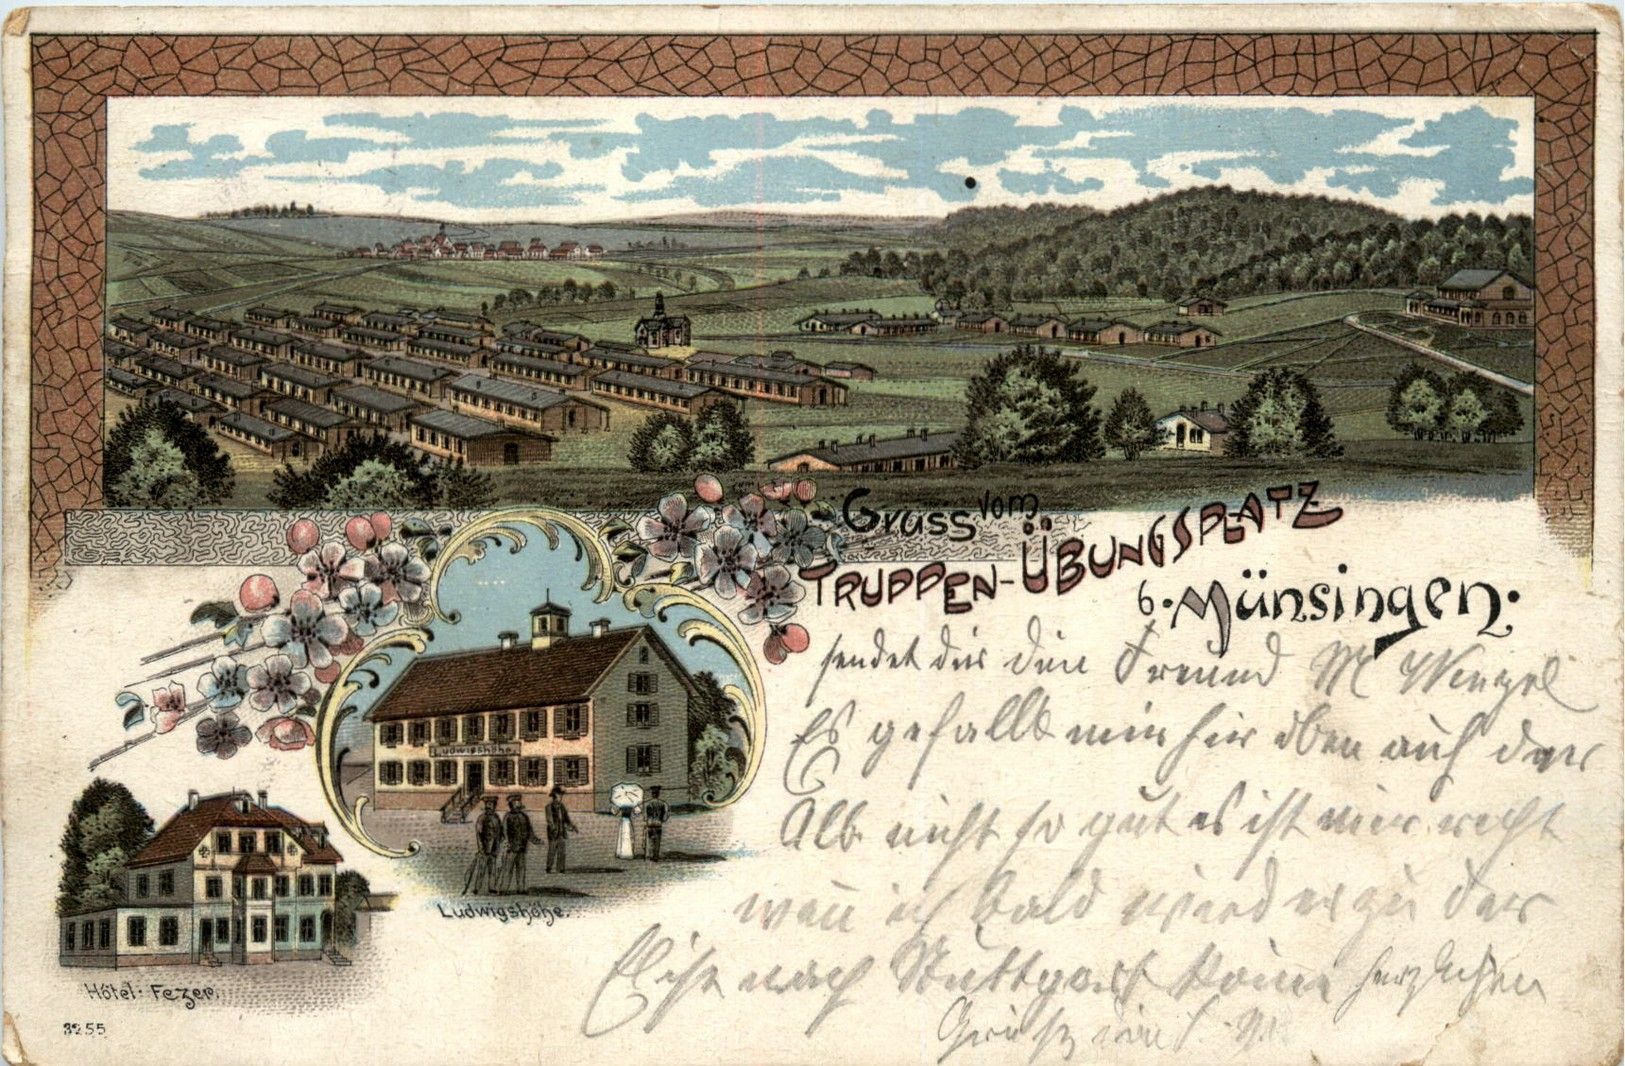 Gruss vom
TRUPPEN-ÜBUNGSPLATZ
b. Münsingen.
sendet dir dein Freund M Wenzel
Es gefällt mir hir oben auf der
Alb nicht so gut es ist mir recht
wen ich bald wieder zu der
nach Stuttgart kome herzlichen
Gruß dein f. M.
Ludwigshöhe.
Ludwigshöhe.
Hôtel Fezer.
3255